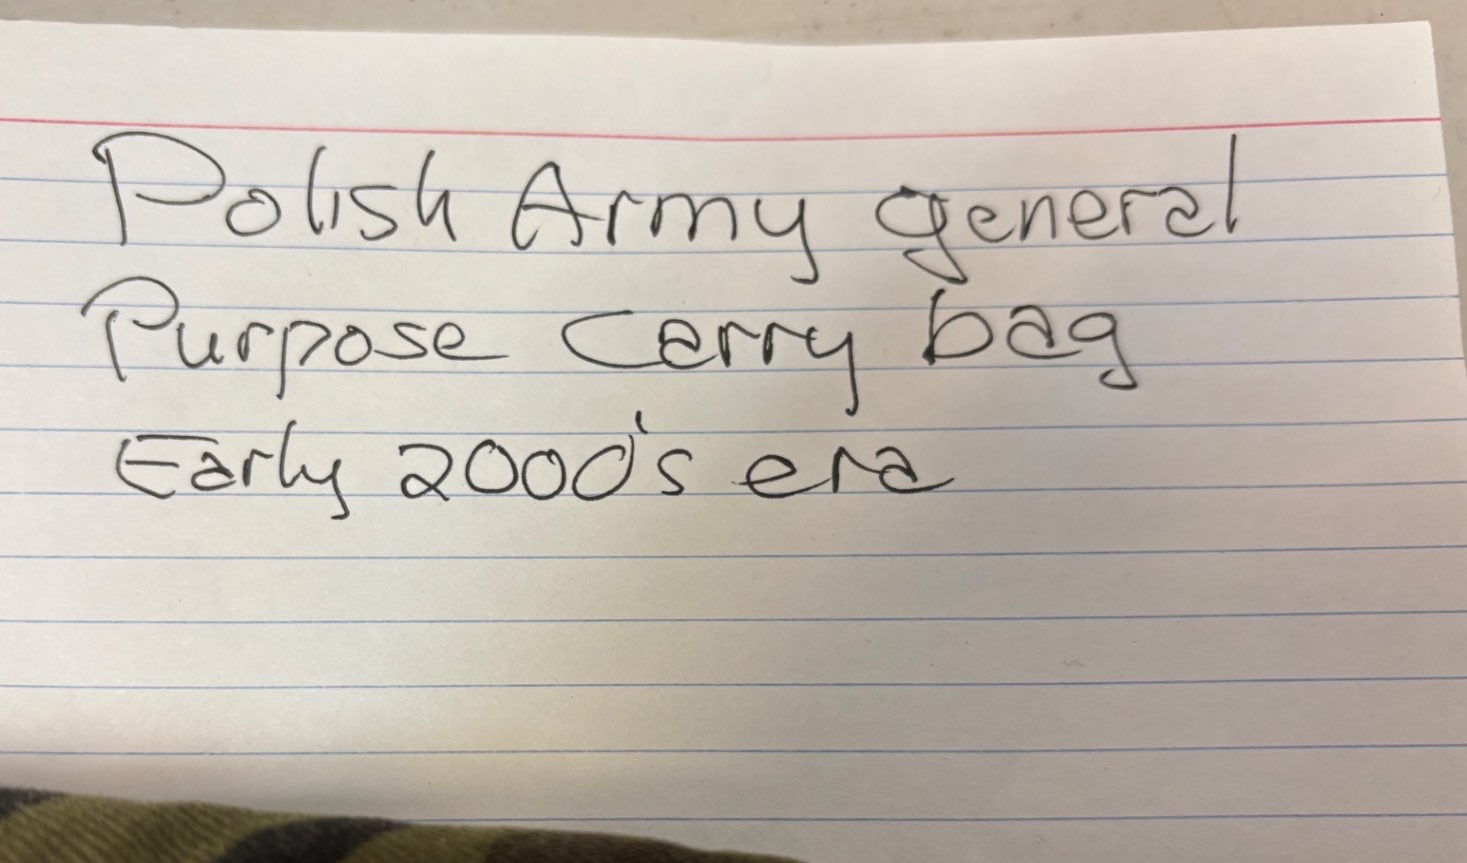 Polish Army general
Purpose Carry bag
Early 2000's era